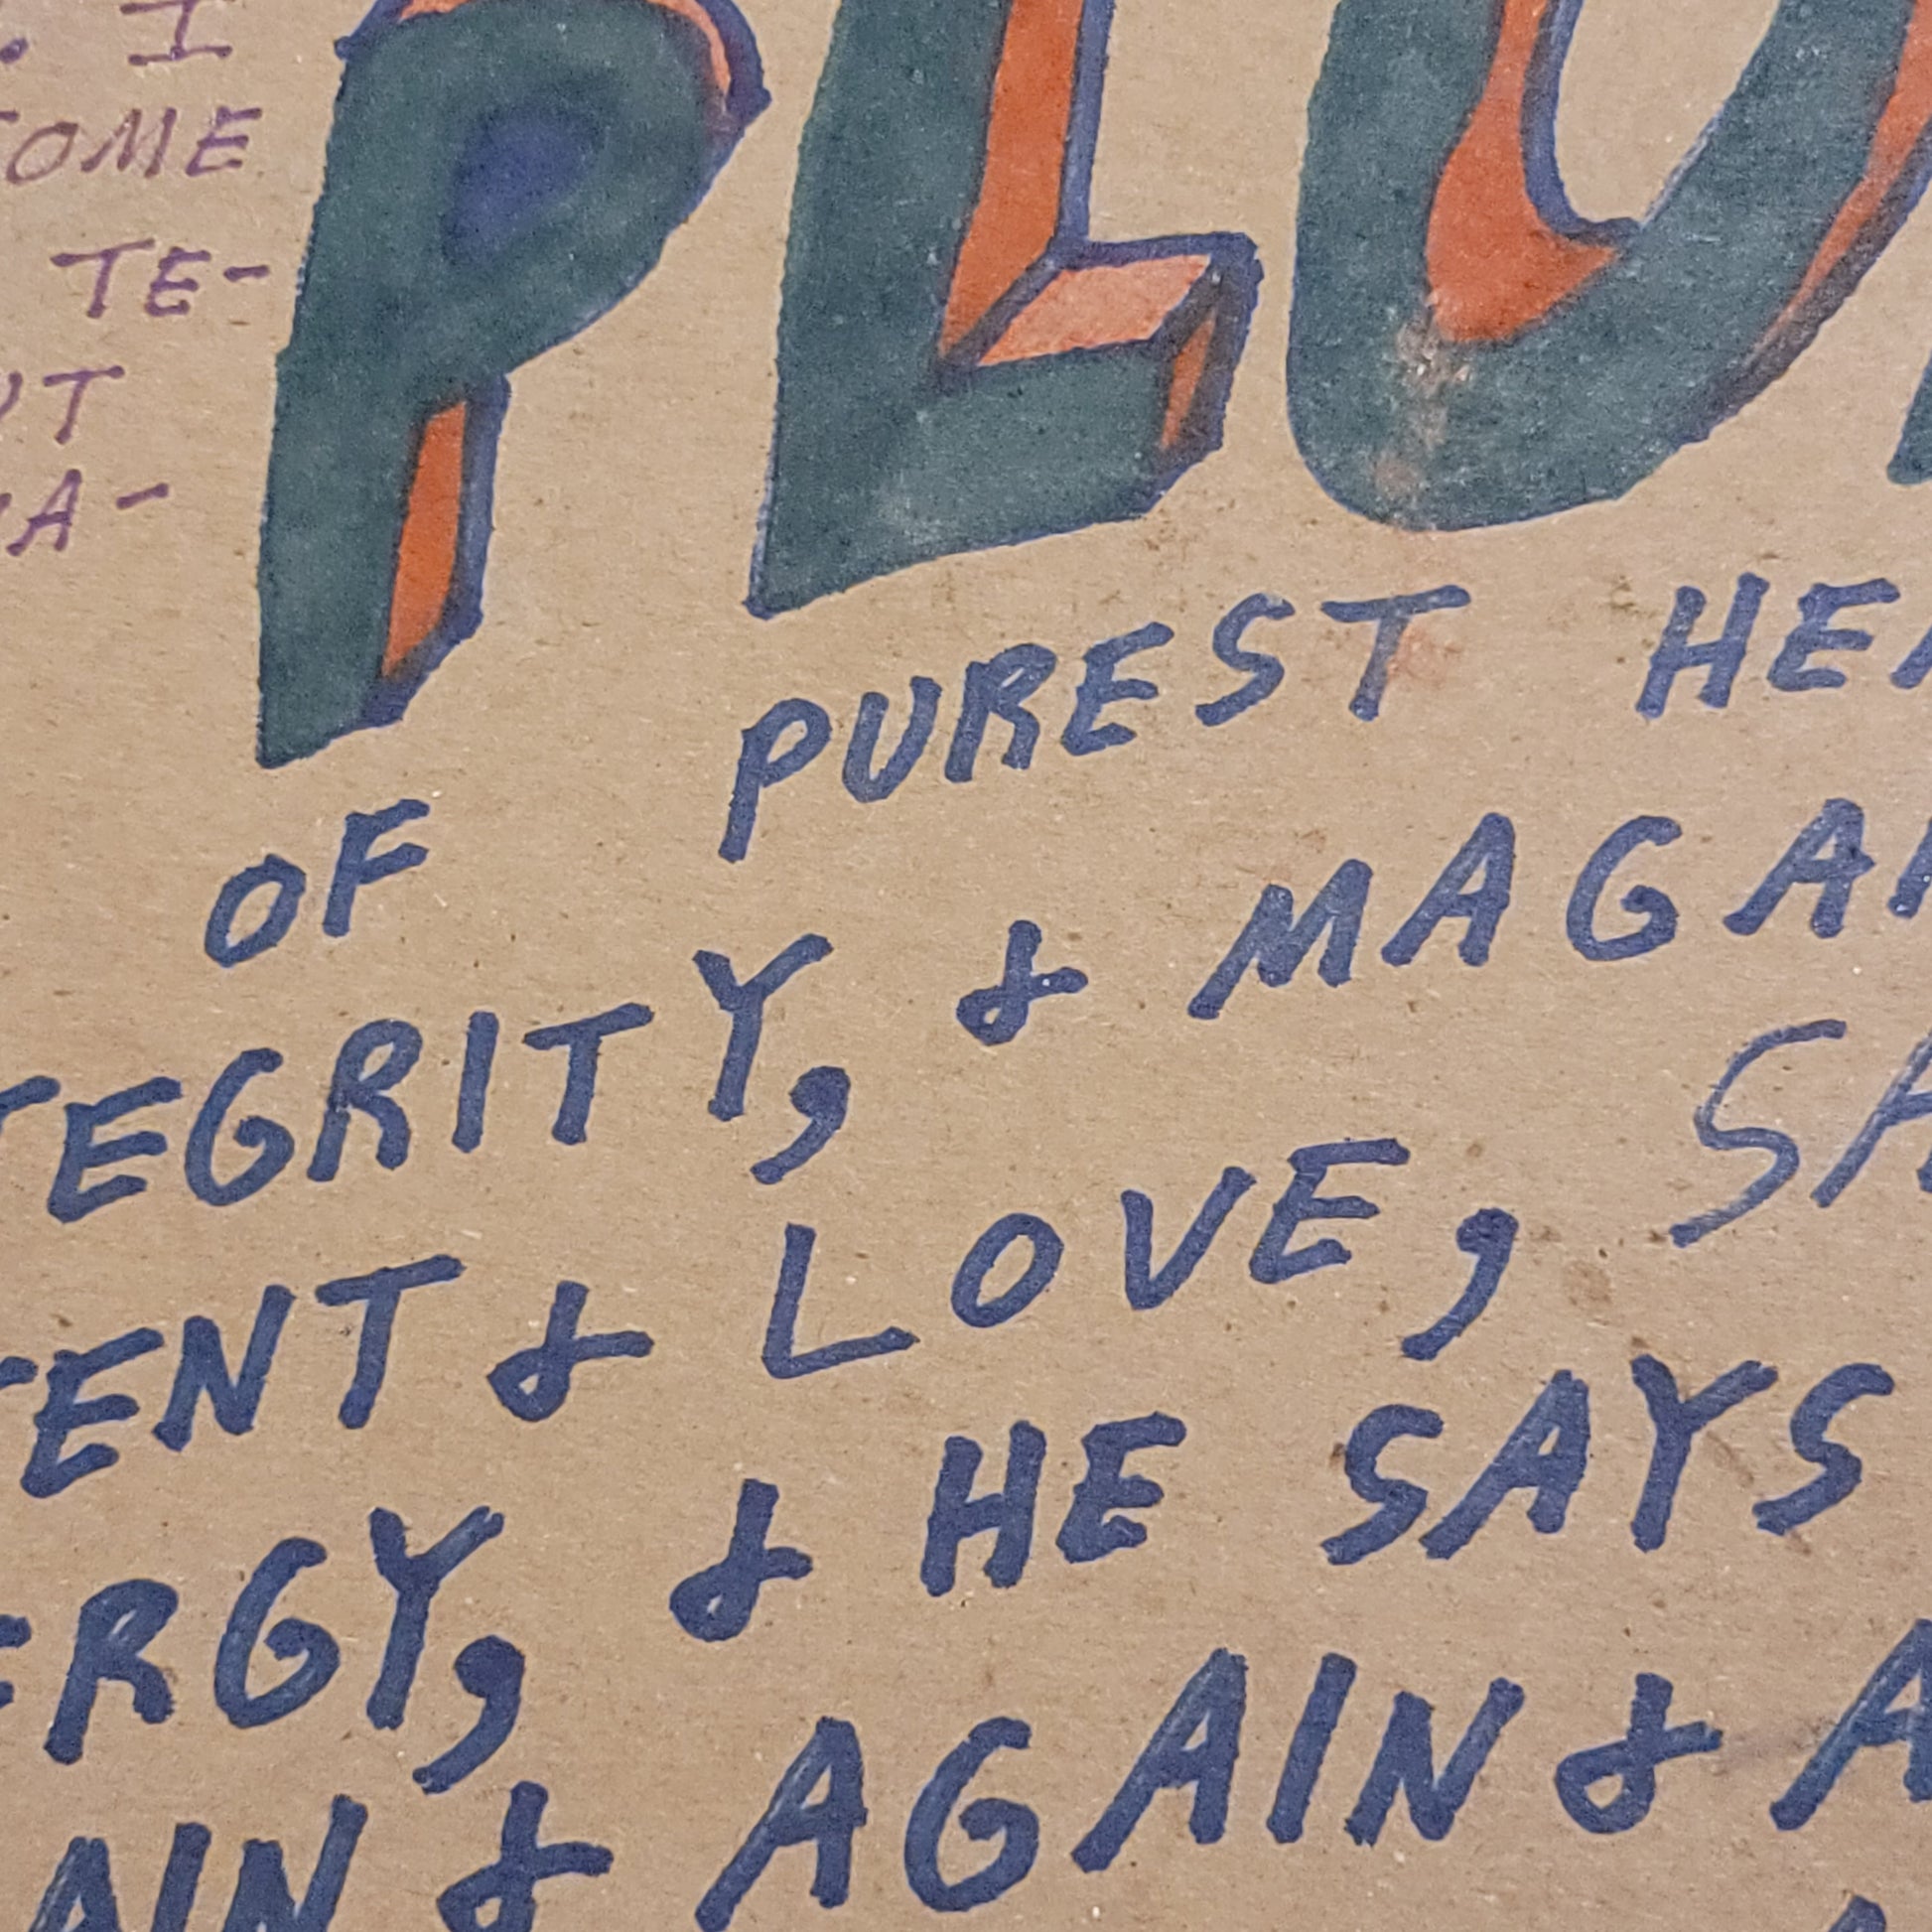 . I
OME
TE-
UT
A-
PLO
OF PUREST HEA
TEGRITY, & MAGAN
TENT & LOVE, SA
ERGY, & HE SAYS
AIN & AGAIN & A